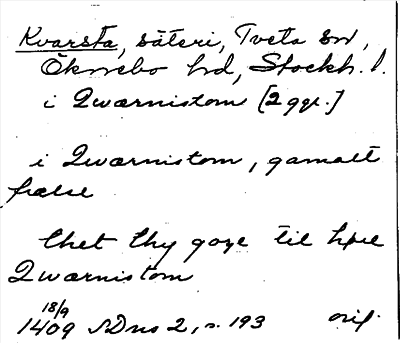 Kvarsta, säteri, Tveta sn,
Öknebo hd, Stockh. l.
i Qwærnistom [2 ggr.]
i Qwærnistom, gamalt
frælse
thet thy göze til høre
Qwærnistom
18/9
1409 SDns 2, s. 193 orig.